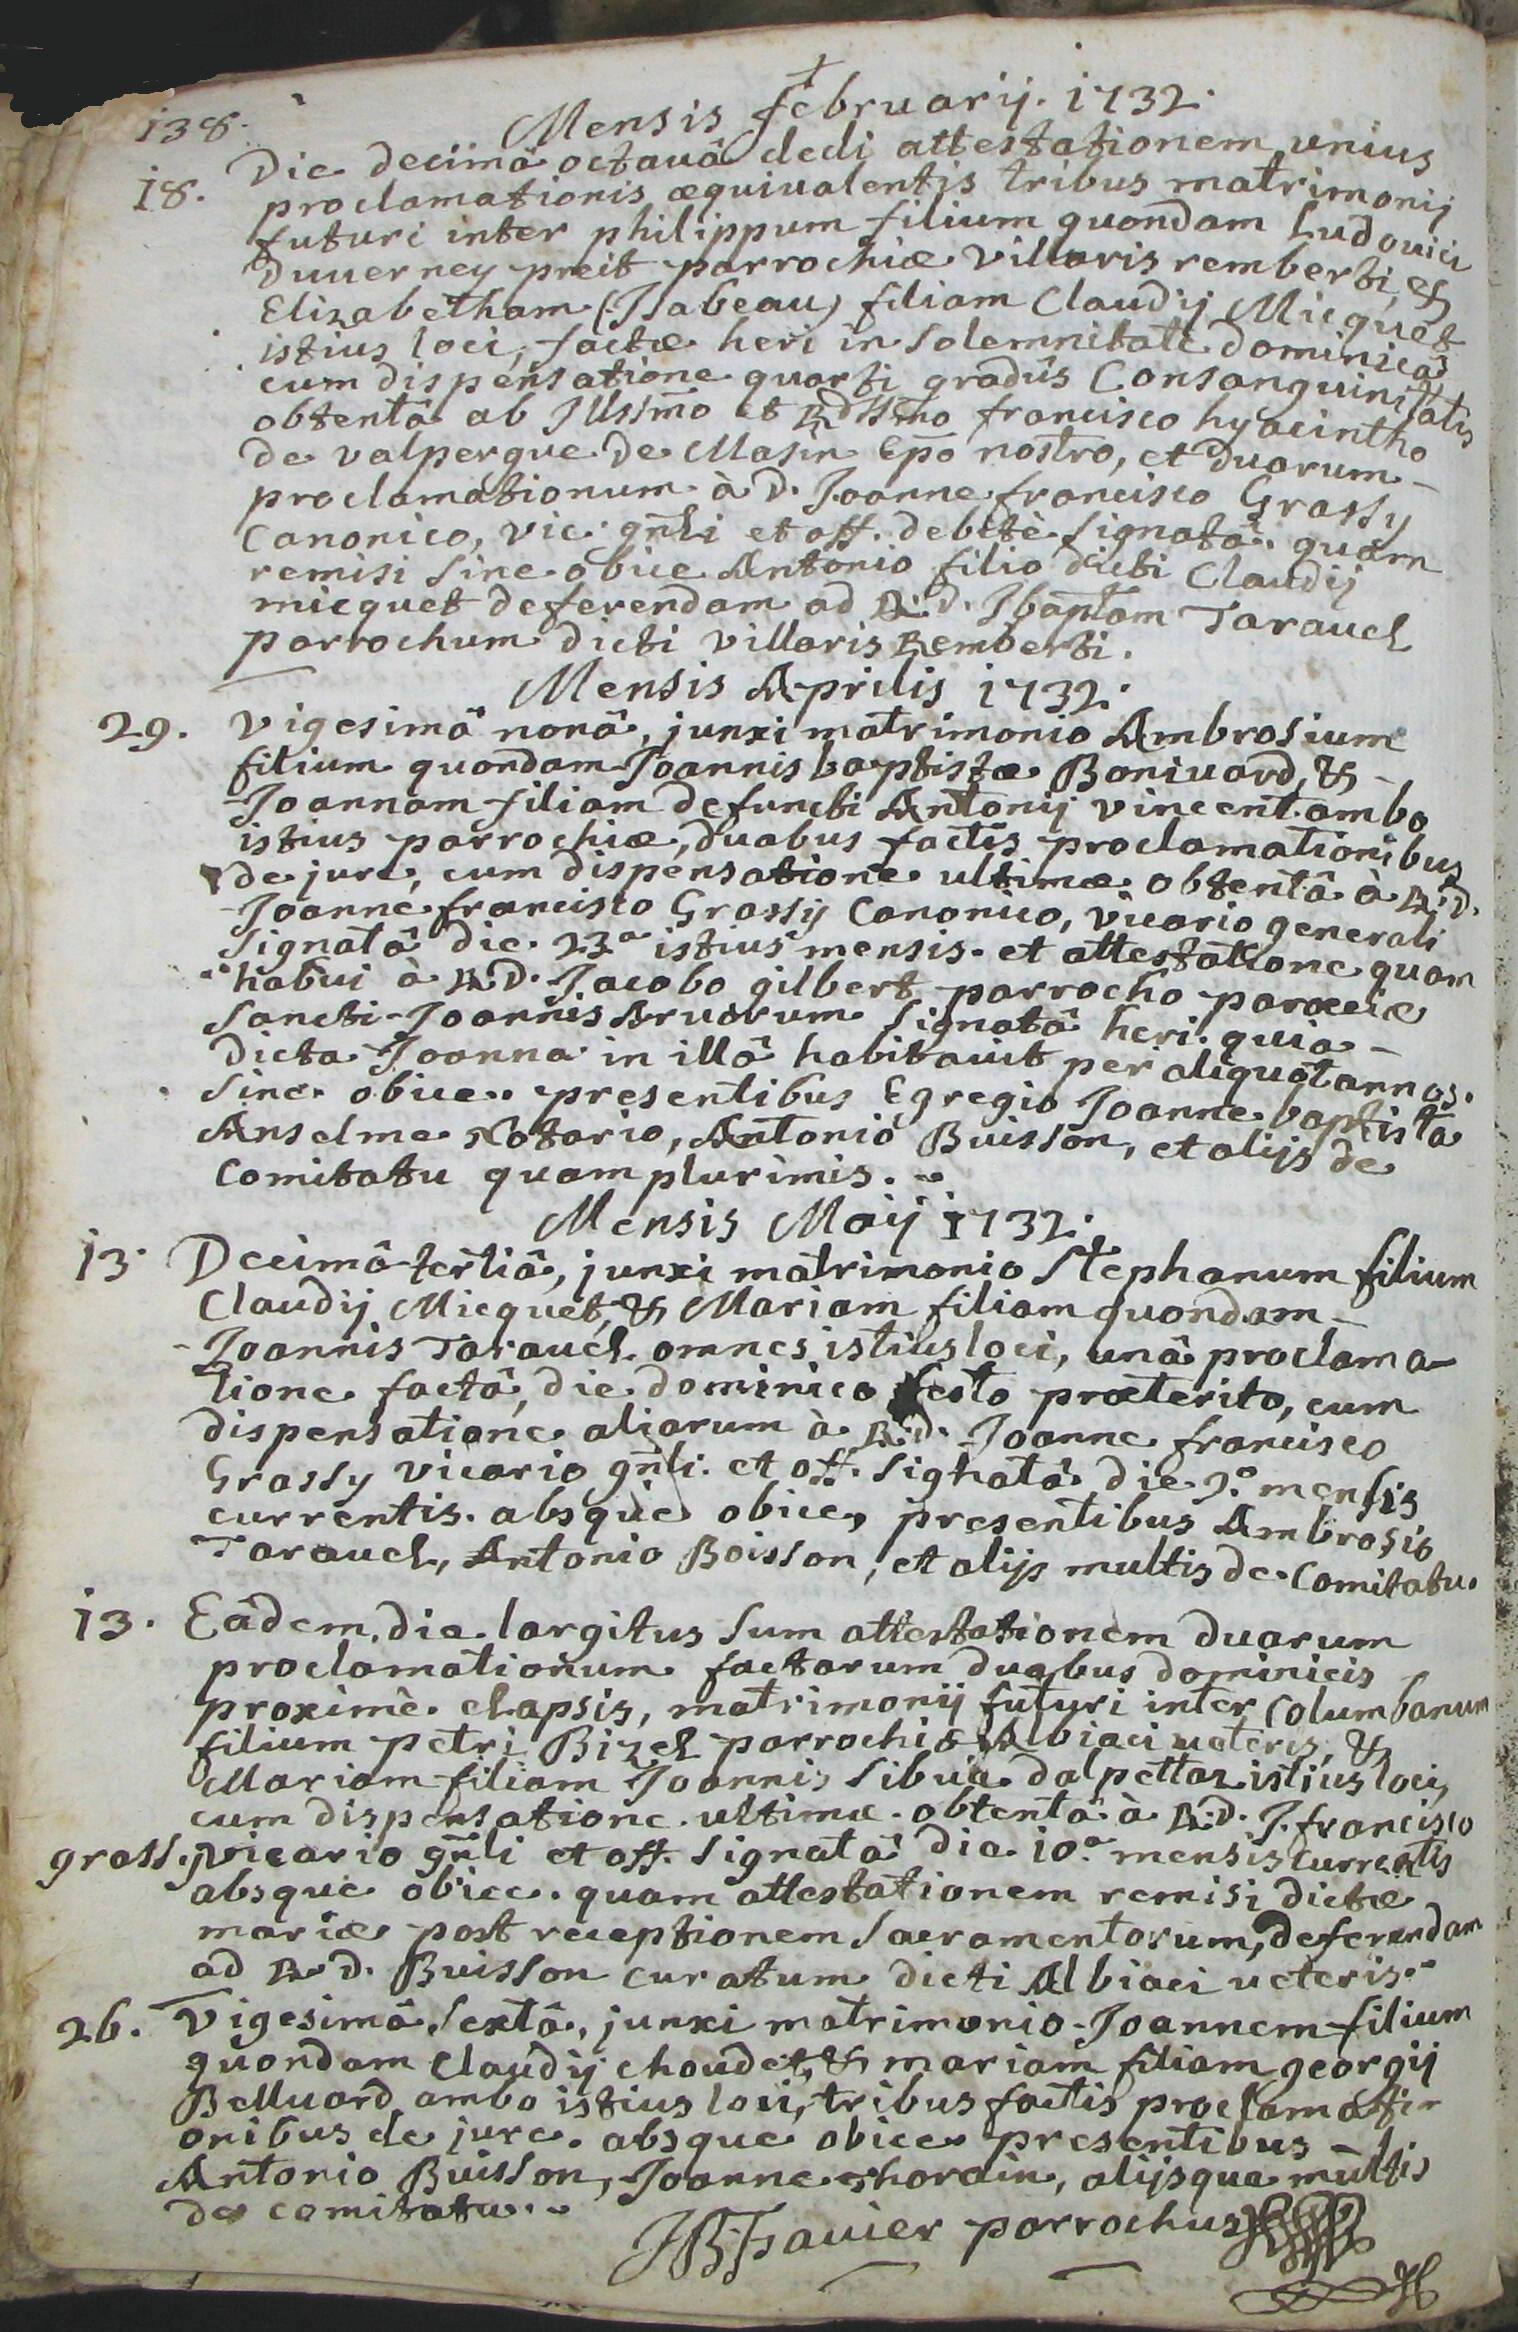 138.
Mensis februarij. 1732.
18. Die decimâ octauâ dedi attestationem vnius
proclamationis æquiualentis tribus matrimonij
futuri inter philippum filium quondam Ludouici
Duuerney preit parrochiæ villaris remberti, &
Elizabetham (Isabeau) filiam Claudij Micquet
istius loci, factæ heri in solemnitate dominicâ
cum dispensatione quarti gradûs Consanguinitatis
obtentâ ab Illsim̃o et Rdssm̃o francisco hyacintho
de valpergue de Masin Ep̃o nostro, et duarum -
proclamationum à D. Joanne francisco Grassy
Canonico, vic. gñli et off. debitè signatâ. quam
remisi sine obice Antonio filio dicti Claudij
micquet deferendam ad R.D. Jbap̃tam Tarauel
parrochum dicti villaris Remberti.
Mensis Aprilis 1732.
29. vigesimâ nonâ, junxi matrimonio Ambrosium
filium quondam Joannis baptistæ Boniuard, & -
Joannam filiam defuncti Antonij vincent. ambo
istius parrochiæ, duabus factis proclamationibus
de jure, cum dispensatione ultimæ obtentâ à R.D.
Joanne francisco Grassy Canonico, vicario generali
signatâ die 23a istius mensis. et attestatione quam
habui à R.D. Jacobo gilbert parrocho parœciæ
Sancti Joannis Aruorum signatâ heri. quia -
dicta Joanna in illâ habitauit per aliquot annos.
sine obice. presentibus Egregio Joanne baptistâ
Anselme Notario, Antonio Buisson, et alijs de
Comitatu quam plurimis.
Mensis Maij 1732.
13. Decimâ tertiâ, junxi matrimonio Stephanum filium
Claudij Micquet, & Mariam filiam quondam -
Joannis Tarauel. omnes istius loci, unâ proclama-
tione factâ, die dominico festo præterito, cum
dispensatione aliarum à R.D. Joanne francisco
Grassy vicario gñli. et off. signatâ die 9.a mensis
currentis. absque obice, presentibus Ambrosio
Tarauel, Antonio Boisson, et alijs multis de Comitatu.
13. Eâdem die largitus sum attestationem duarum
proclamationum factarum duabus dominicis
proximè elapsis, matrimonij futuri inter Columbanum
filium petri Bizel parrochiæ Albiaci ueteris, &
Mariam filiam Joannis Sibuë dalpettaz istius loci,
cum dispensatione ultimæ obtentâ à R.D. J. francisco
grass. vicario gñli et off. signatâ die 10.a mensis currentis
absque obice. quam attestationem remisi dictæ
mariæ post receptionem sacramentorum, deferendam
ad R.D. Buisson curatum dicti Albiaci ueteris.
26. Vigesimâ sextâ, junxi matrimonio Joannem filium
quondam Claudij choudet, & mariam filiam georgij
Belluard ambo istius loci, tribus factis proclamati-
onibus de jure. absque obice presentibus -
Antonio Buisson, Joanne chordin, alijsque multis
de comitatu.
JB Fauier parrochus